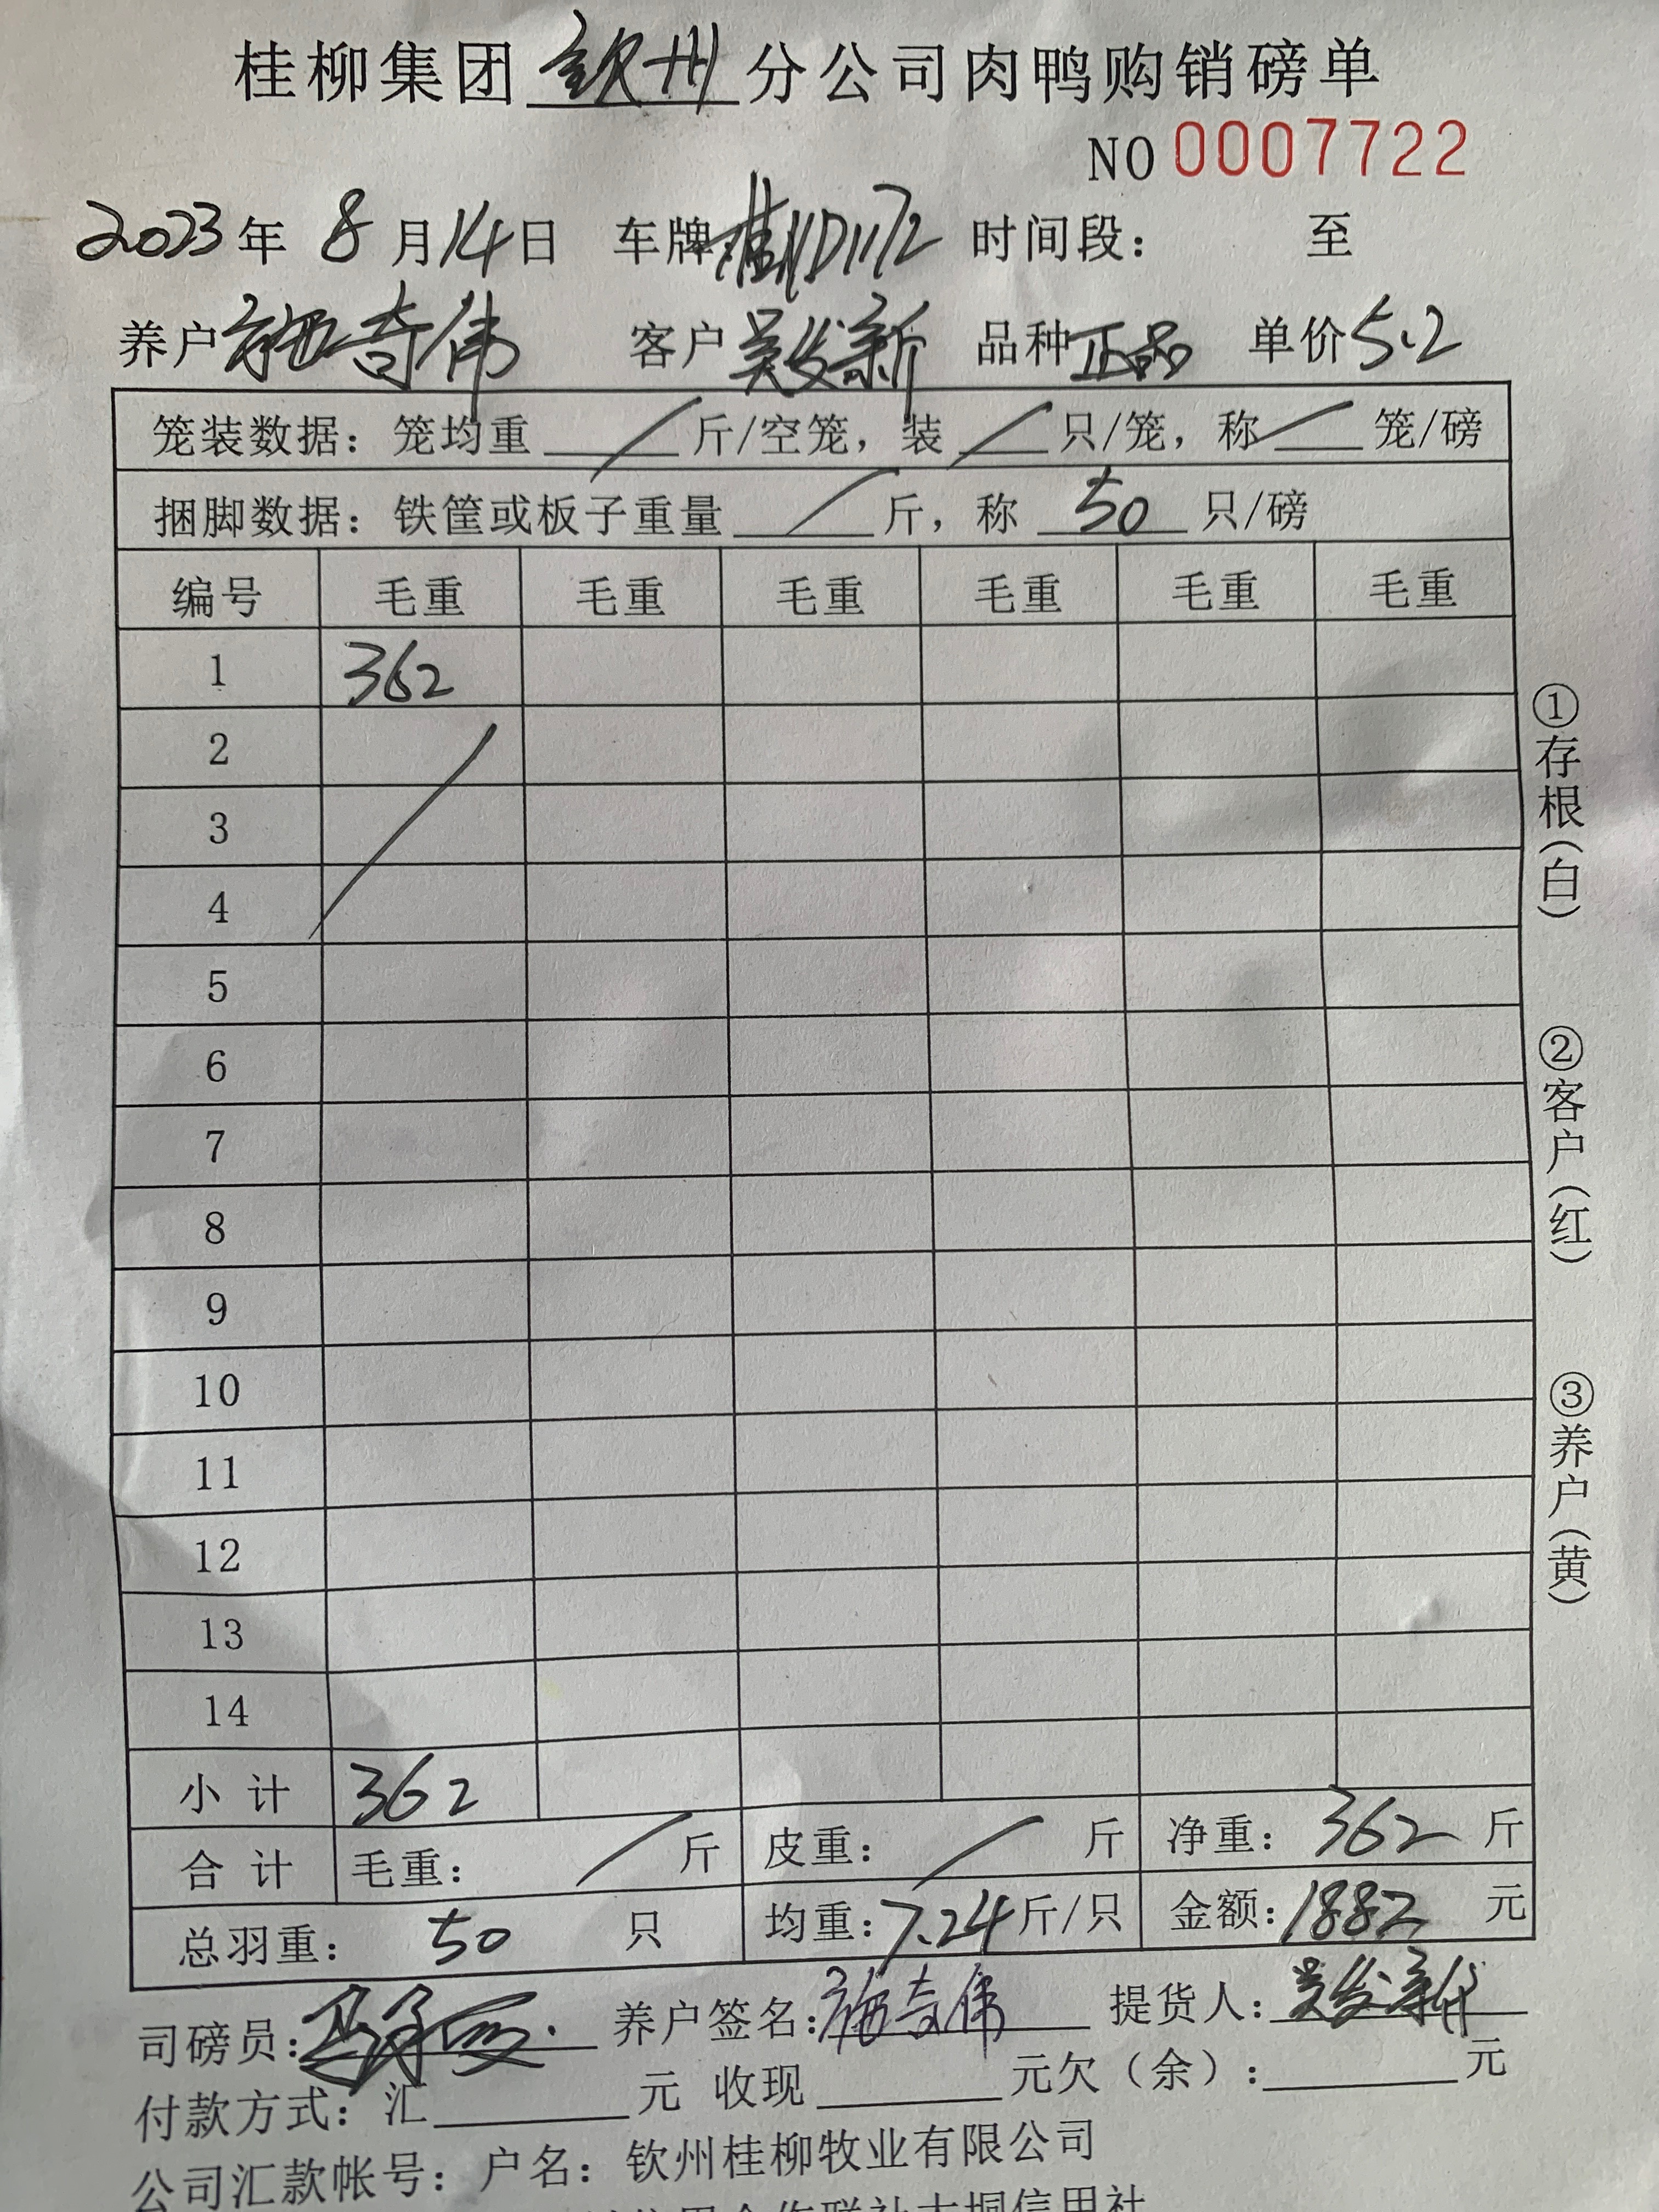 桂柳集团钦州分公司肉鸭购销磅单
NO 0007722
2023年 8月14日 车牌: 时间段: 至
养户施奇伟 客户吴发新 品种正品 单价5.2
笼装数据: 笼均重 / 斤/空笼, 装 / 只/笼, 称 / 笼/磅
捆脚数据: 铁筐或板子重量 / 斤, 称 50 只/磅
编号 毛重 毛重 毛重 毛重 毛重 毛重
1 362
2
3
4
5
6
7
8
9
10
11
12
13
14
小计 362
合计 毛重: / 斤 皮重: / 斤 净重: 362 斤
总羽重: 50 只 均重: 7.24斤/只 金额: 1882 元
司磅员: 养户签名: 施奇伟 提货人: 吴发新代
付款方式: 汇 元 收现 元欠(余): 元
公司汇款帐号: 户名: 钦州桂柳牧业有限公司
①存根(白)
②客户(红)
③养户(黄)